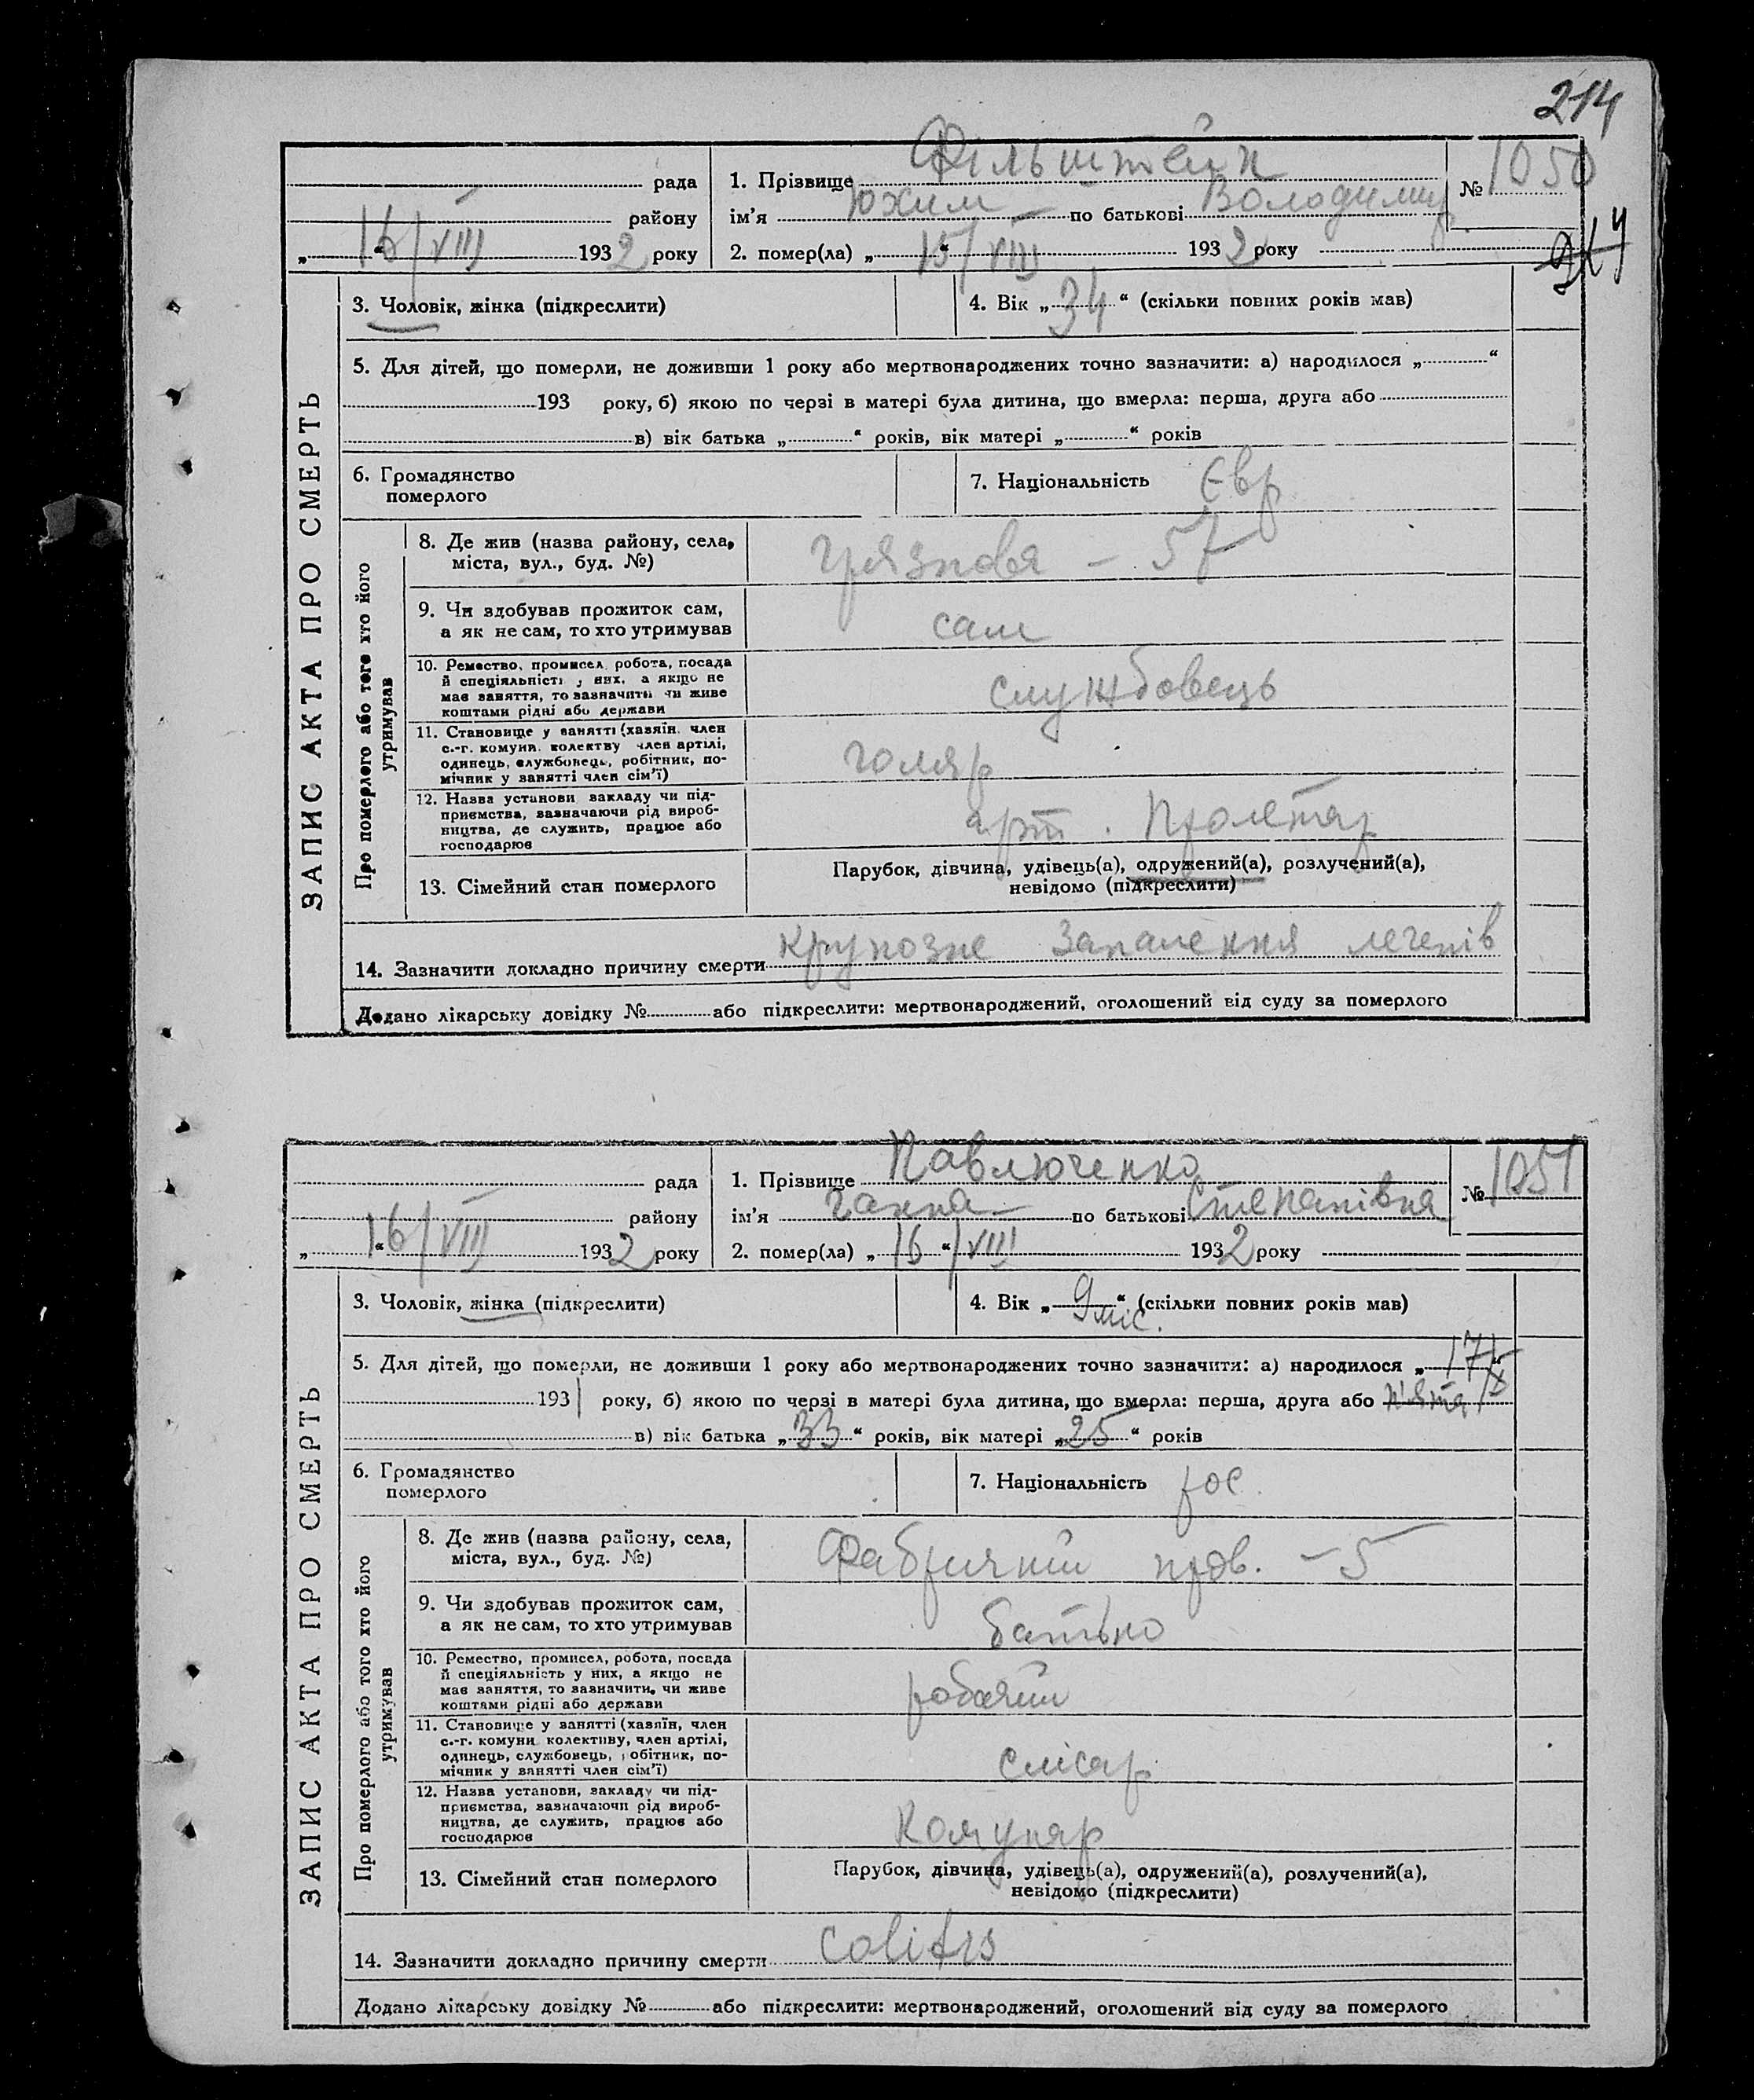 214
рада
району
„16“/VIII 1932 року
1. Прізвище Фільштейн
ім’я Юхим по батькові Володимир.
2. помер(ла) „15“/VIII 1932 року
№ 1050
214
ЗАПИС АКТА ПРО СМЕРТЬ
3. Чоловік, жінка (підкреслити)
4. Вік „34“ (скільки повних років мав)
5. Для дітей, що померли, не доживши 1 року або мертвонароджених точно зазначити: а) народилося „ “
193 року, б) якою по черзі в матері була дитина, що вмерла: перша, друга або
в) вік батька „ “ років, вік матері „ “ років
6. Громадянство
померлого
7. Національність Євр
Про померлого або того хто його
утримував
8. Де жив (назва району, села,
міста, вул., буд. №)
Грязнова – 57
9. Чи здобував прожиток сам,
а як не сам, то хто утримував
сам
10. Ремество, промисел, робота, посада
й спеціяльність у них, а якщо не
має заняття, то зазначити чи живе
коштами рідні або держави
службовець
11. Становище у занятті (хазяїн, член
с.-г. комуни, колективу член артілі,
одинець, службовець, робітник, по-
мічник у занятті член сім’ї)
голяр
12. Назва установи, закладу чи під-
приємства, зазначаючи рід вироб-
ництва, де служить, працює або
господарює
арт. Пролетар
13. Сімейний стан померлого
Парубок, дівчина, удівець(а), одружений(а), розлучений(а),
невідомо (підкреслити)
14. Зазначити докладно причину смерти крупозне запалення легенів
Додано лікарську довідку № або підкреслити: мертвонароджений, оголошений від суду за померлого
рада
району
„16“/VIII 1932 року
1. Прізвище Павлюченко
ім’я Ганна по батькові Степанівна
2. помер(ла) „16“/VIII 1932 року
№ 1051
ЗАПИС АКТА ПРО СМЕРТЬ
3. Чоловік, жінка (підкреслити)
4. Вік „9 міс.“ (скільки повних років мав)
5. Для дітей, що померли, не доживши 1 року або мертвонароджених точно зазначити: а) народилося „17“
1931 року, б) якою по черзі в матері була дитина, що вмерла: перша, друга або п'ята
в) вік батька „33“ років, вік матері „25“ років
6. Громадянство
померлого
7. Національність рос.
Про померлого або того хто його
утримував
8. Де жив (назва району, села,
міста, вул., буд. №)
Фабричний пров. – 5
9. Чи здобував прожиток сам,
а як не сам, то хто утримував
батько
10. Ремество, промисел, робота, посада
й спеціяльність у них, а якщо не
має заняття, то зазначити, чи живе
коштами рідні або держави
робочий
11. Становище у занятті (хазяїн, член
с.-г. комуни колективу, член артілі,
одинець, службовець, робітник, по-
мічник у занятті член сім’ї)
слюсар
12. Назва установи, закладу чи під-
приємства, зазначаючи рід вироб-
ництва, де служить, працює або
господарює
Комунар
13. Сімейний стан померлого
Парубок, дівчина, удівець(а), одружений(а), розлучений(а),
невідомо (підкреслити)
14. Зазначити докладно причину смерти colitis
Додано лікарську довідку № або підкреслити: мертвонароджений, оголошений від суду за померлого